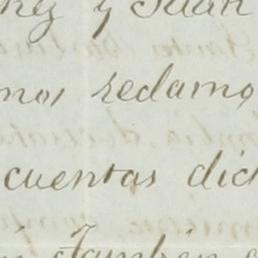 y Juan
mos redamo
cuentas dic
tambien